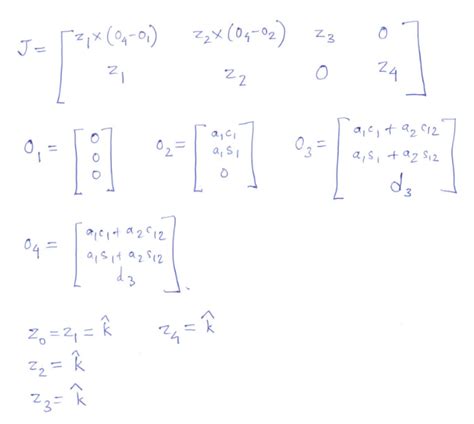 J = [ z₁×(O₄-O₁) z₂×(O₄-O₂) z₃ 0
z₁ z₂ 0 z₄ ]
O₁ = [ 0 0 0 ] O₂ = [ a₁c₁ a₁s₁ 0 ] O₃ = [ a₁c₁ + a₂c₁₂ a₁s₁ + a₂s₁₂ d₃ ]
O₄ = [ a₁c₁ + a₂c₁₂ a₁s₁ + a₂s₁₂ d₃ ].
z₀ = z₁ = k̂ z₄ = k̂
z₂ = k̂
z₃ = k̂